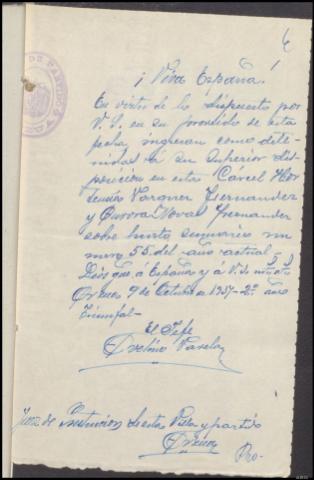 6
¡ Viva España!
En virtud de lo dispuesto por
V. S. en su proveido de esta
fecha, ingresan como dete-
nidas á su Superior dis-
posición en esta Cárcel Hor
tensia Vazquez Fernandez
y Aurora Novas Fernandez
sobre hurto, sumario nu
mero 55 del año actual-
Dios gue. a España y á V. S. m. at.
9 de Octubre de 1937- 2º año
Triunfal-
El Jefe
Avelino Varela
Juez de Instrucion de esta Villa y partido
Pro-
DE PARTIDO